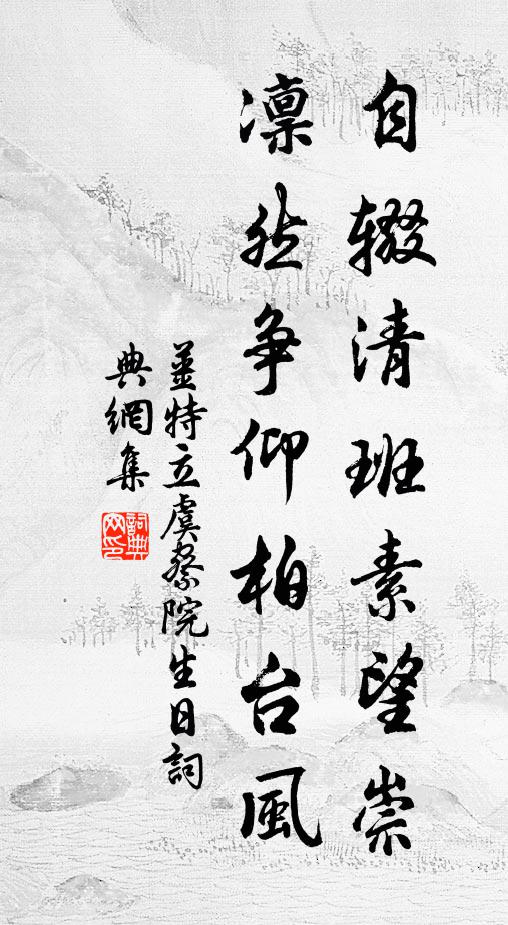 自辍清班素望崇
凛然争仰柏台风
姜特立虞察院生日詞
典網集
詞典網印